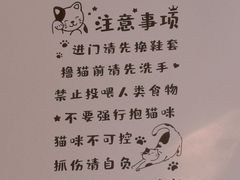 注意事项
进门请先换鞋套
撸猫前请先洗手
禁止投喂人类食物
不要强行抱猫咪
猫咪不可控
抓伤请自负